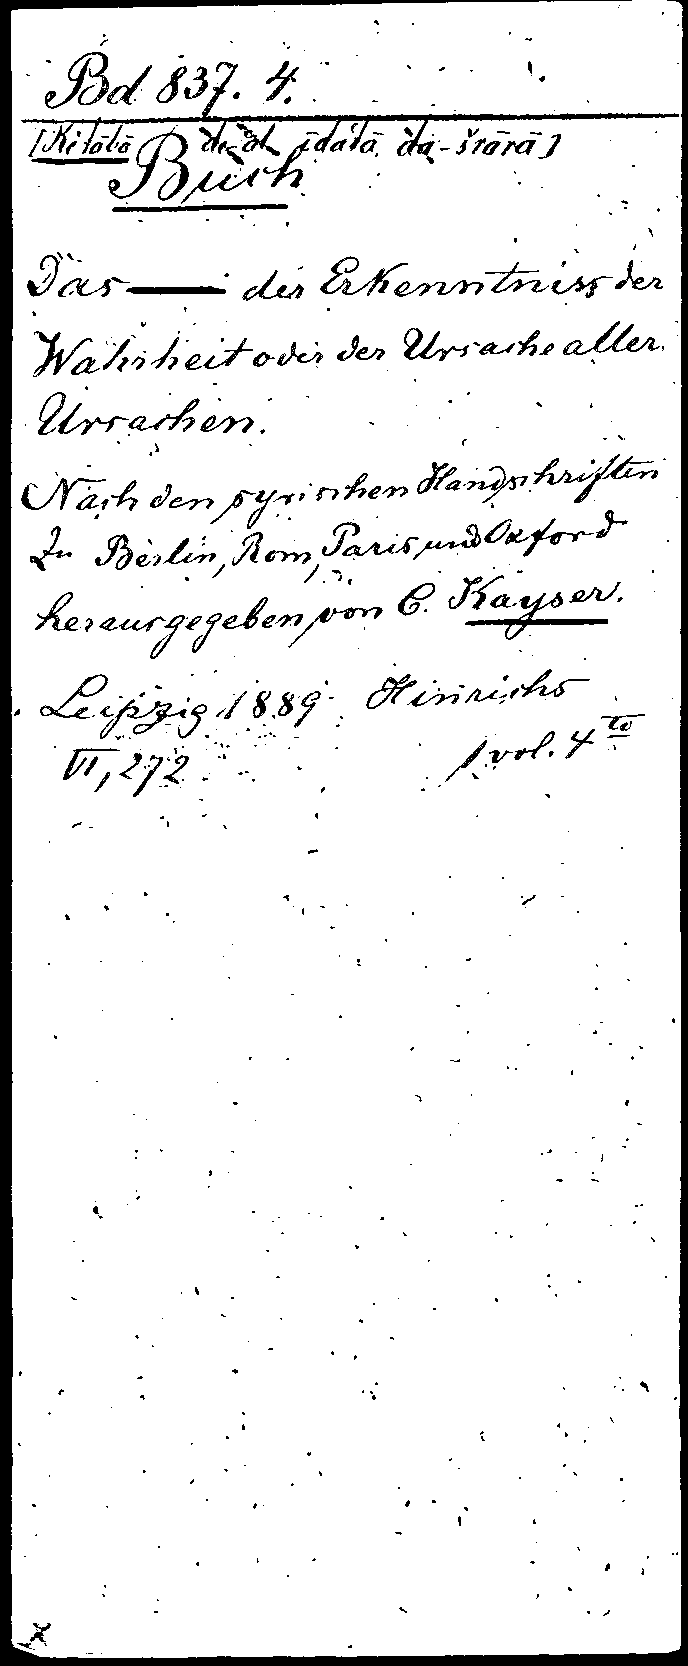 Bd 837. 4.
[Ketābā de-al īdatā da-šrārā]
Buch
Das —— der Erkenntniss der
Wahrheit oder der Ursache aller
Ursachen.
Nach den syrischen Handschriften
zu Berlin, Rom, Paris und Oxford
herausgegeben von C. Kayser.
Leipzig 1889 Hinrichs
VI, 272 1 vol. 4to
x